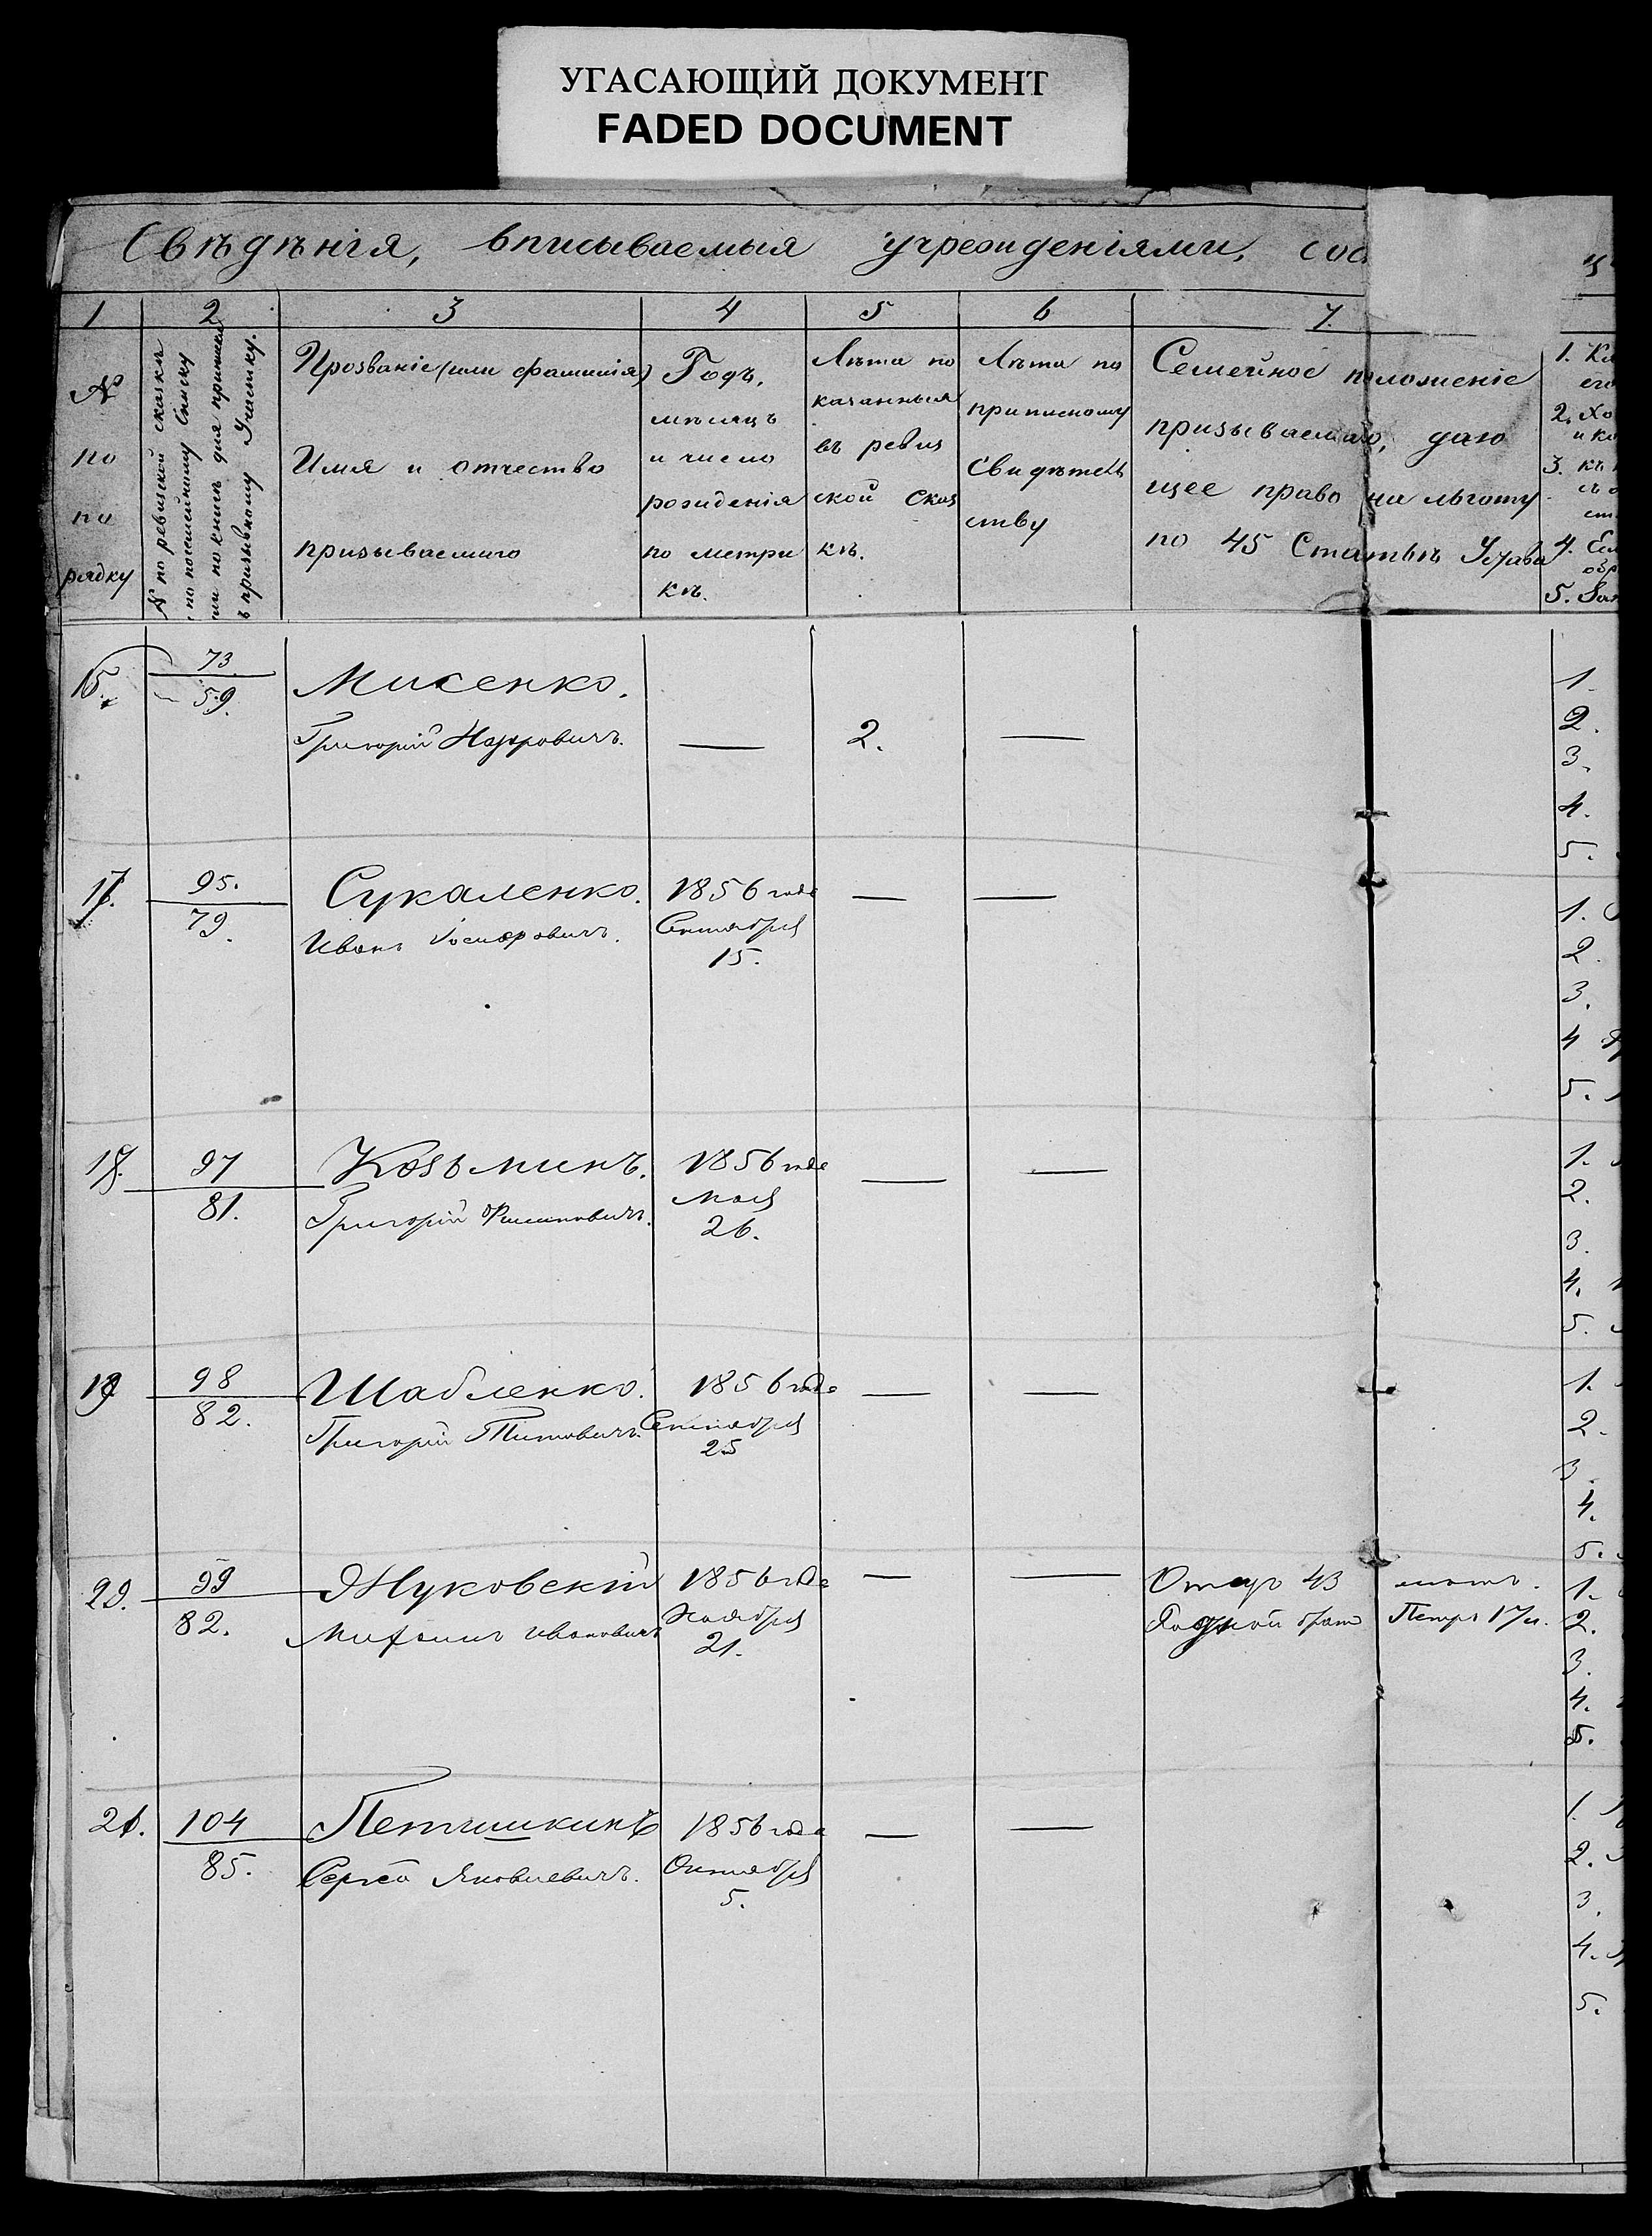 УГАСАЮЩИЙ ДОКУМЕНТ
FADED DOCUMENT
Свѣдѣнія, вписываемыя учрежденіями, сос
1 2 3 4 5 6 7.
№
по
по
рядку
№ по ревизской сказкѣ
по посемейному списку
или по книгѣ для приписки
къ призывному Участку.
Прозваніе (или фамилія)
Имя и отчество
призываемаго
Годъ,
мѣсяцъ
и число
рожденія
по метри
кѣ.
Лѣта по
казанныя
въ ревиз
ской сказ
кѣ.
Лѣта по
приписному
свидѣтель
ству
Семейное положеніе
призываемаго, даю
щее право на льготу
по 45 Статьѣ Устава
1. Ка
его
2. Хо
и ко
3. къ
4. Ес
обр
5. Зан
73
59.
Мисенко.
Григорій
— 2. —
1.
2.
3.
4.
5.
17.
95.
79.
Сукаленко.
Иванъ
1856 года
Сентября
15.
— —
1.
2.
3.
4
5.
18.
97
81.
Козьминъ.
Григорій Филиповичъ.
1856 года
Мая
26.
— —
1.
2.
3.
4.
5.
19
98
82.
Шабленко.
Григорій Титовичъ.
1856 года
Сентября
25
— —
1.
2.
3.
4.
5.
20.
99
82.
Жуковскій
Михаилъ Ивановичъ
1856 года
Ноября
21.
— —
Отцу 43 лѣтъ.
Родной братъ Петръ 17 л.
1.
2.
3.
4.
5.
21.
104
85.
Петишкинъ
Сергѣй Яковлевичъ.
1856 года
Октября
5.
— —
1.
2.
3.
4.
5.